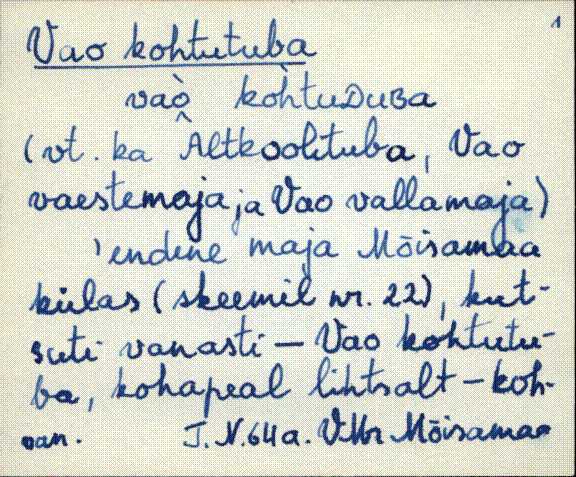 1
Vao kohtutuba
vaò kòhtuDuBa
(vt. ka Altkoolituba, Vao
vaestemaja ja Vao vallamaja)
'endine maja Mõisamaa
külas (skeemil nr. 22), kut-
suti vanasti – Vao kohtutu-
ba, kohapeal lihtsalt – koh-
van. J. N. 64 a. VMr Mõisamaa